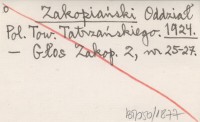 o Zakopiański Oddział
Pol. Tow. Tatrzańskiego. 1924.
— Głos Zakop. 2, nr. 25-27.